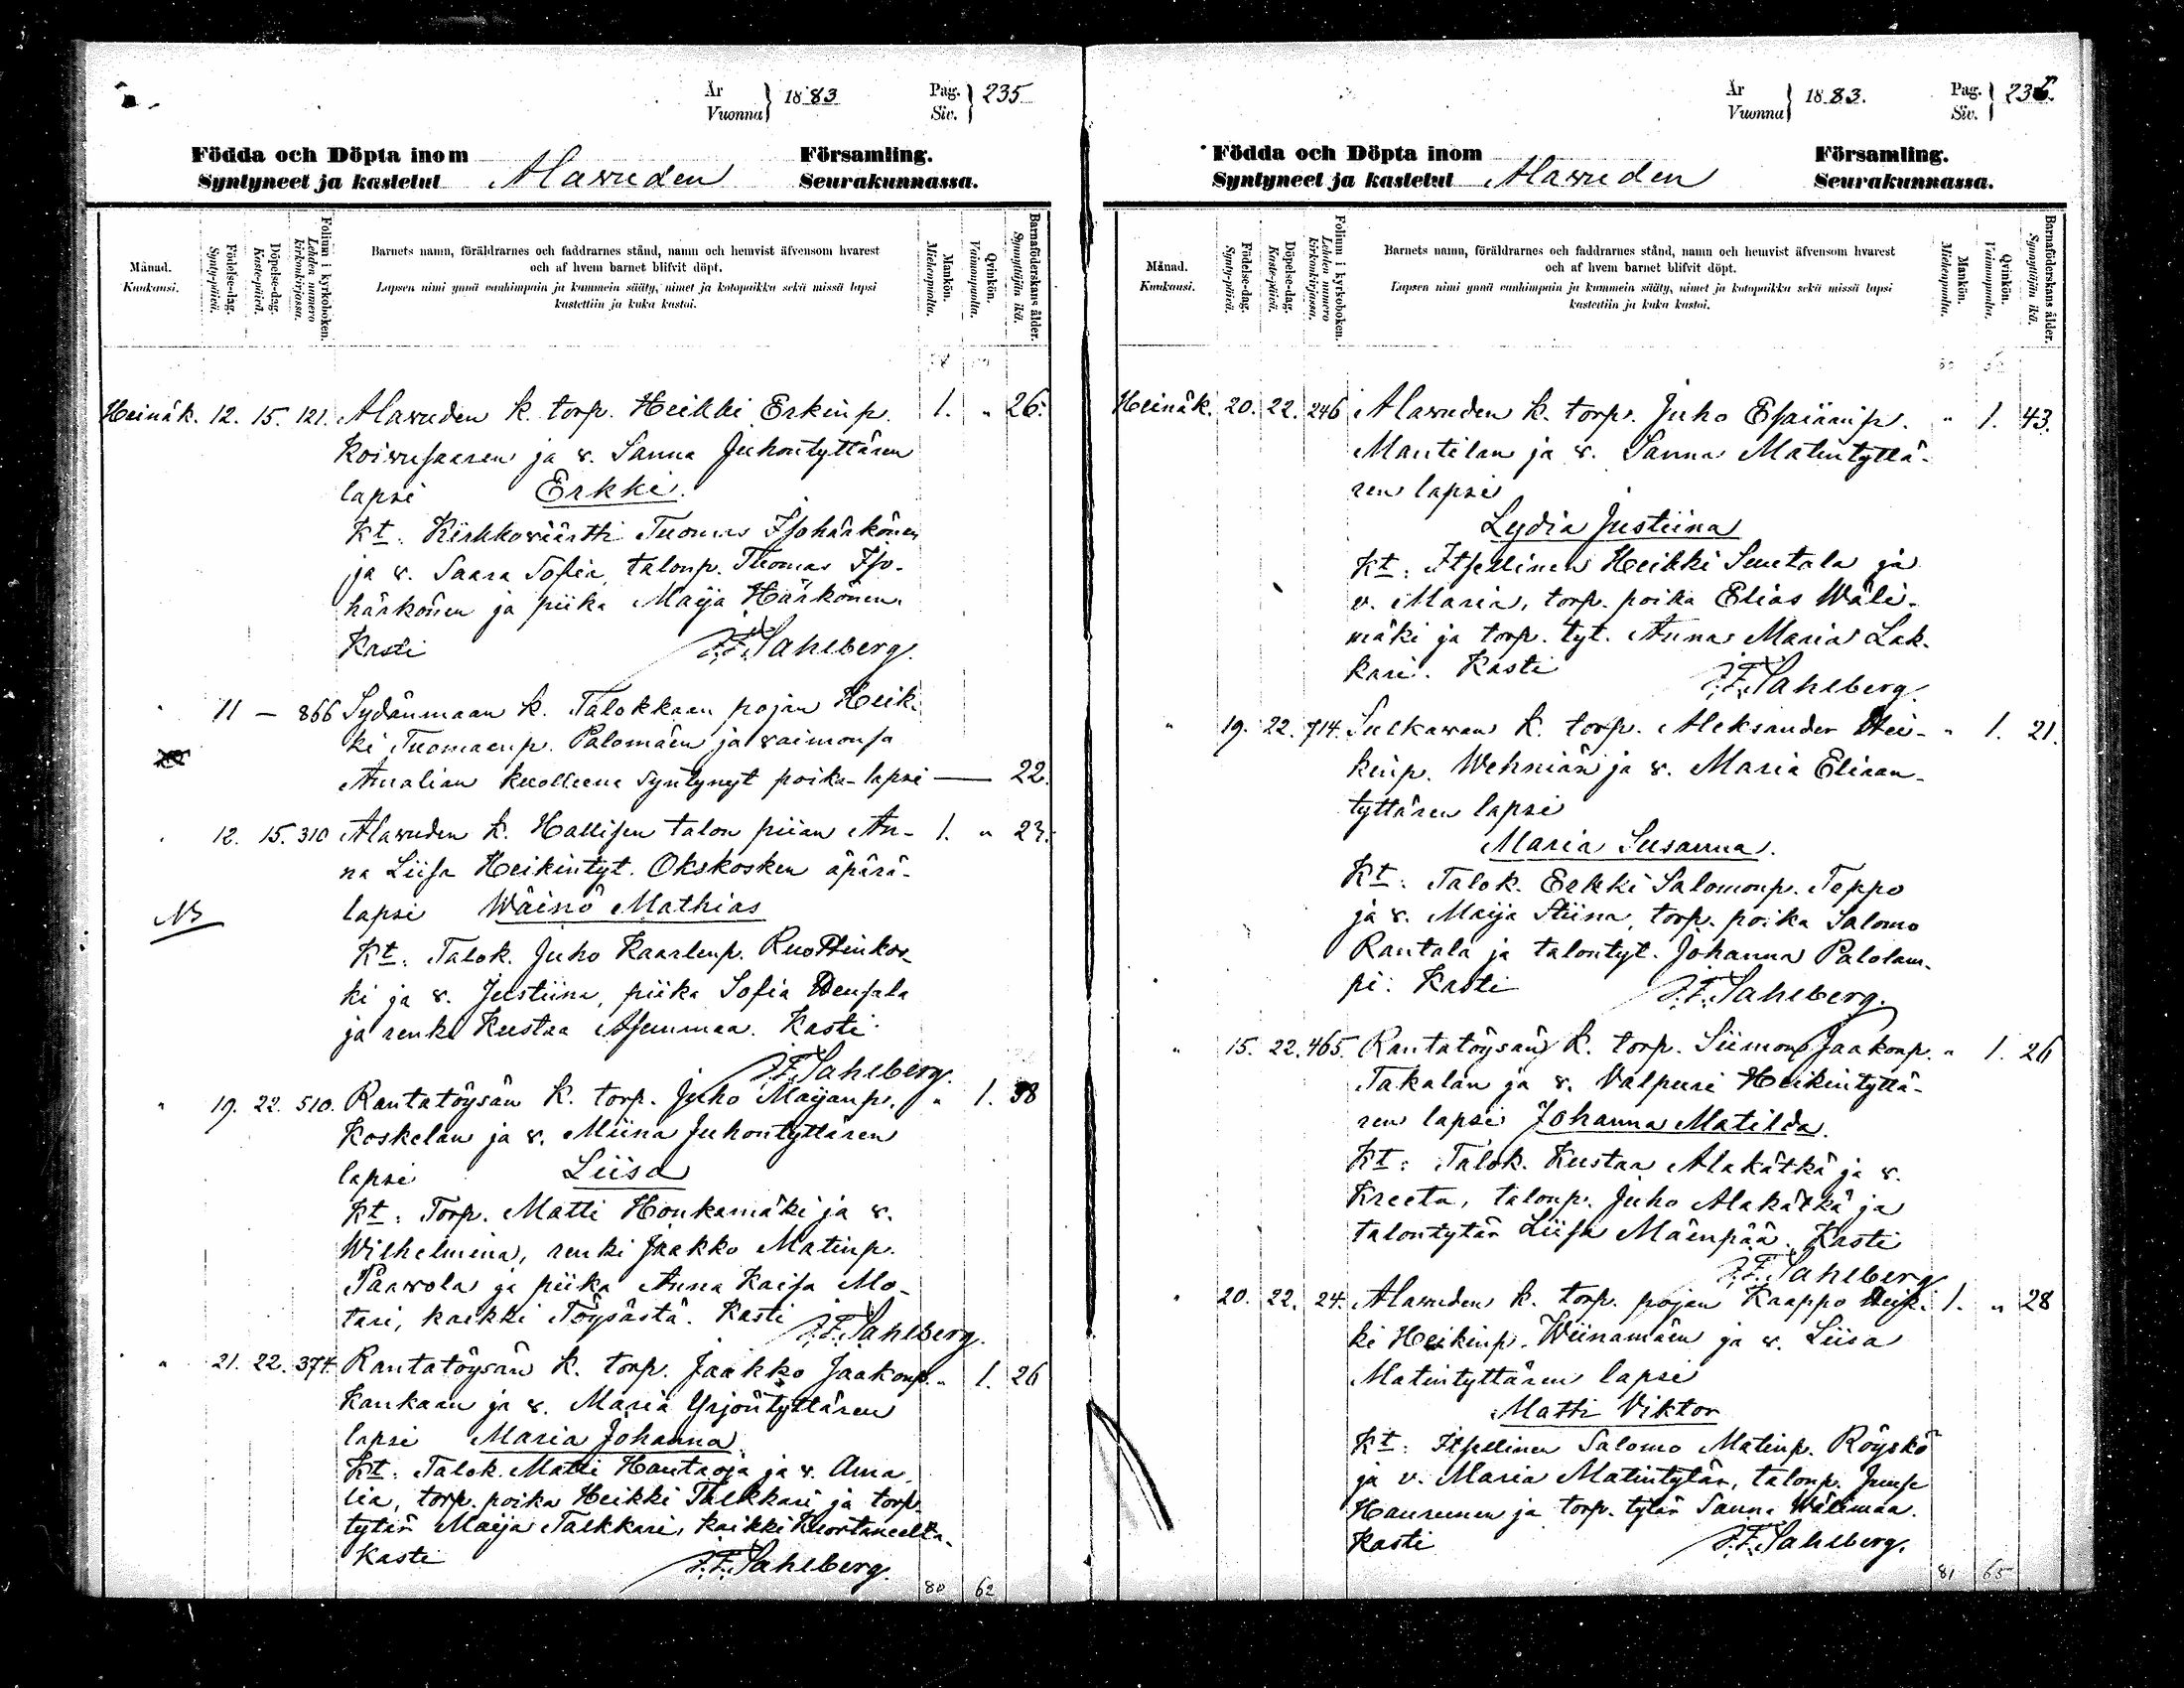 År
Vuonna } 1883 Pag.
Siv. } 235
Födda och Döpta inom Församling.
Syntyneet ja kastetut Alavuden Seurakunnassa.
Månad.
Kuukausi.
Födelse-dag.
Synty-päivä.
Döpelse-dag.
Kaste-päivä.
Folium i kyrkoboken.
Lehden numero kirkonkirjassa.
Barnets namn, föräldrarnes och faddrarnes stånd, namn och hemvist äfvensom hvarest
och af hvem barnet blifvit döpt.
Lapsen nimi ynnä vanhimpain ja kummein sääty, nimet ja kotopaikka sekä missä lapsi
kastettiin ja kuka kastoi.
Mankön.
Miehenpuolia.
Qvinkön.
Vaimonpuolia.
Barnaföderskans ålder.
Synnyttäjän ikä.
Heinäk. 12. 15. 121. Alavuden k. torp. Heikki Erkinp. 1. " 26.
Koivusaaren ja v. Sanna Juhontyttären
lapsi Erkki.
Kt. Kirkkoväärtti Tuomas Isohärkönen
ja v. Saara Sofia, talonp. Thomas Iso-
härkönen ja piika Maija Härkönen.
Kasti J.F. Sahlberg.
" 11 — 866 Sydänmaan k. Talokkaan pojan Heik-
ki Tuomaanp. Palomäen ja vaimonsa
Amalian kuolleena syntynyt poika-lapsi — 22.
" 12. 15. 310 Alavuden k. Hallisen talon piian An- 1. " 23.
na Liisa Heikintyt. Okskosken äpärä-
NB lapsi Wäinö Mathias
Kt. Talok. Juho Kaarlenp. Ruottinkos-
ki ja v. Justiina, piika Sofia
ja renki Kustaa Asunmaa. Kasti
J.F. Sahlberg.
" 19. 22. 510. Rantatöysän k. torp. Juho Maijanp. " 1. 38
Koskelan ja v. Miina Juhontyttären
lapsi Liisa
Kt. Torp. Matti Honkamäki ja v.
Wilhelmina, renki Jaakko Matinp.
Paavola ja piika Anna Kaisa Mo-
tari, kaikki Töysästä. Kasti J.F. Sahlberg.
" 21. 22. 374. Rantatöysän k. torp. Jaakko Jaakonp. " 1. 26
Kankaan ja v. Maria Yrjöntyttären
lapsi Maria Johanna.
Kt. Talok. Matti Hautaoja ja v. Ama-
lia, torp. poika Heikki Talkkari ja torp.
tytär Maija Talkkari, kaikki Kuortaneelta.
Kasti J.F. Sahlberg.
80 62
År
Vuonna } 1883. Pag.
Siv. } 236.
Födda och Döpta inom Församling.
Syntyneet ja kastetut Alavuden Seurakunnassa.
Månad.
Kuukausi.
Födelse-dag.
Synty-päivä.
Döpelse-dag.
Kaste-päivä.
Folium i kyrkoboken.
Lehden numero kirkonkirjassa.
Barnets namn, föräldrarnes och faddrarnes stånd, namn och hemvist äfvensom hvarest
och af hvem barnet blifvit döpt.
Lapsen nimi ynnä vanhimpain ja kummein sääty, nimet ja kotopaikka sekä missä lapsi
kastettiin ja kuka kastoi.
Mankön.
Miehenpuolia.
Qvinkön.
Vaimonpuolia.
Barnaföderskans ålder.
Synnyttäjän ikä.
Heinäk. 20. 22. 246 Alavuden k. torp. Juho Esaianp. " 1. 43.
Mantilan ja v. Sanna Matintyttä-
ren lapsi
Lydia Justiina
Kt. Itsellinen Heikki Seutala ja
v. Maria, torp. poika Elias Wäli-
mäki ja torp. tyt. Anna Maria Lak-
kari. Kasti J.F. Sahlberg.
" 19. 22. 714. Sulkavan k. torp. Aleksander Hei- " 1. 21.
kinp. Wehniän ja v. Maria Eliaan-
tyttären lapsi
Maria Susanna.
Kt. Talok. Erkki Salomonp. Teppo
ja v. Maija Stiina, torp. poika Salomo
Rantala ja talontyt. Johanna Palolam-
pi. Kasti J.F. Sahlberg.
" 15. 22. 465. Rantatöysän k. torp. Siimon Jaakonp. " 1. 26
Takalan ja v. Valpuri Heikintyttä-
ren lapsi Johanna Matilda.
Kt. Talok. Kustaa Alakätkä ja v.
Kreeta, talonp. Juho Alakätkä ja
talontytär Liisa Mäenpää. Kasti
J.F. Sahlberg
" 20. 22. 24. Alavuden k. torp. pojan Kaappo Heik- 1. " 28
ki Heikinp. Wiinamäen ja v. Liisa
Matintyttären lapsi
Matti Viktor
Kt. Itsellinen Salomo Matinp. Röyskö
ja v. Maria Matintytär, talonp. Juuse
Haurunen ja torp. tytär Sanna Wälimaa.
Kasti J.F. Sahlberg.
81 65